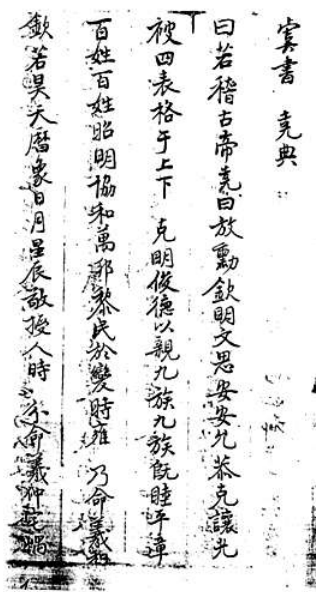 虞書 堯典
曰若稽古帝堯曰放勳欽明文思安安允恭克讓光
被四表格于上下 克明俊德以親九族九族既睦平章
百姓百姓昭明協和萬邦黎民於變時雍 乃命羲和
欽若昊天曆象日月星辰敬授人時 分命羲仲宅嵎